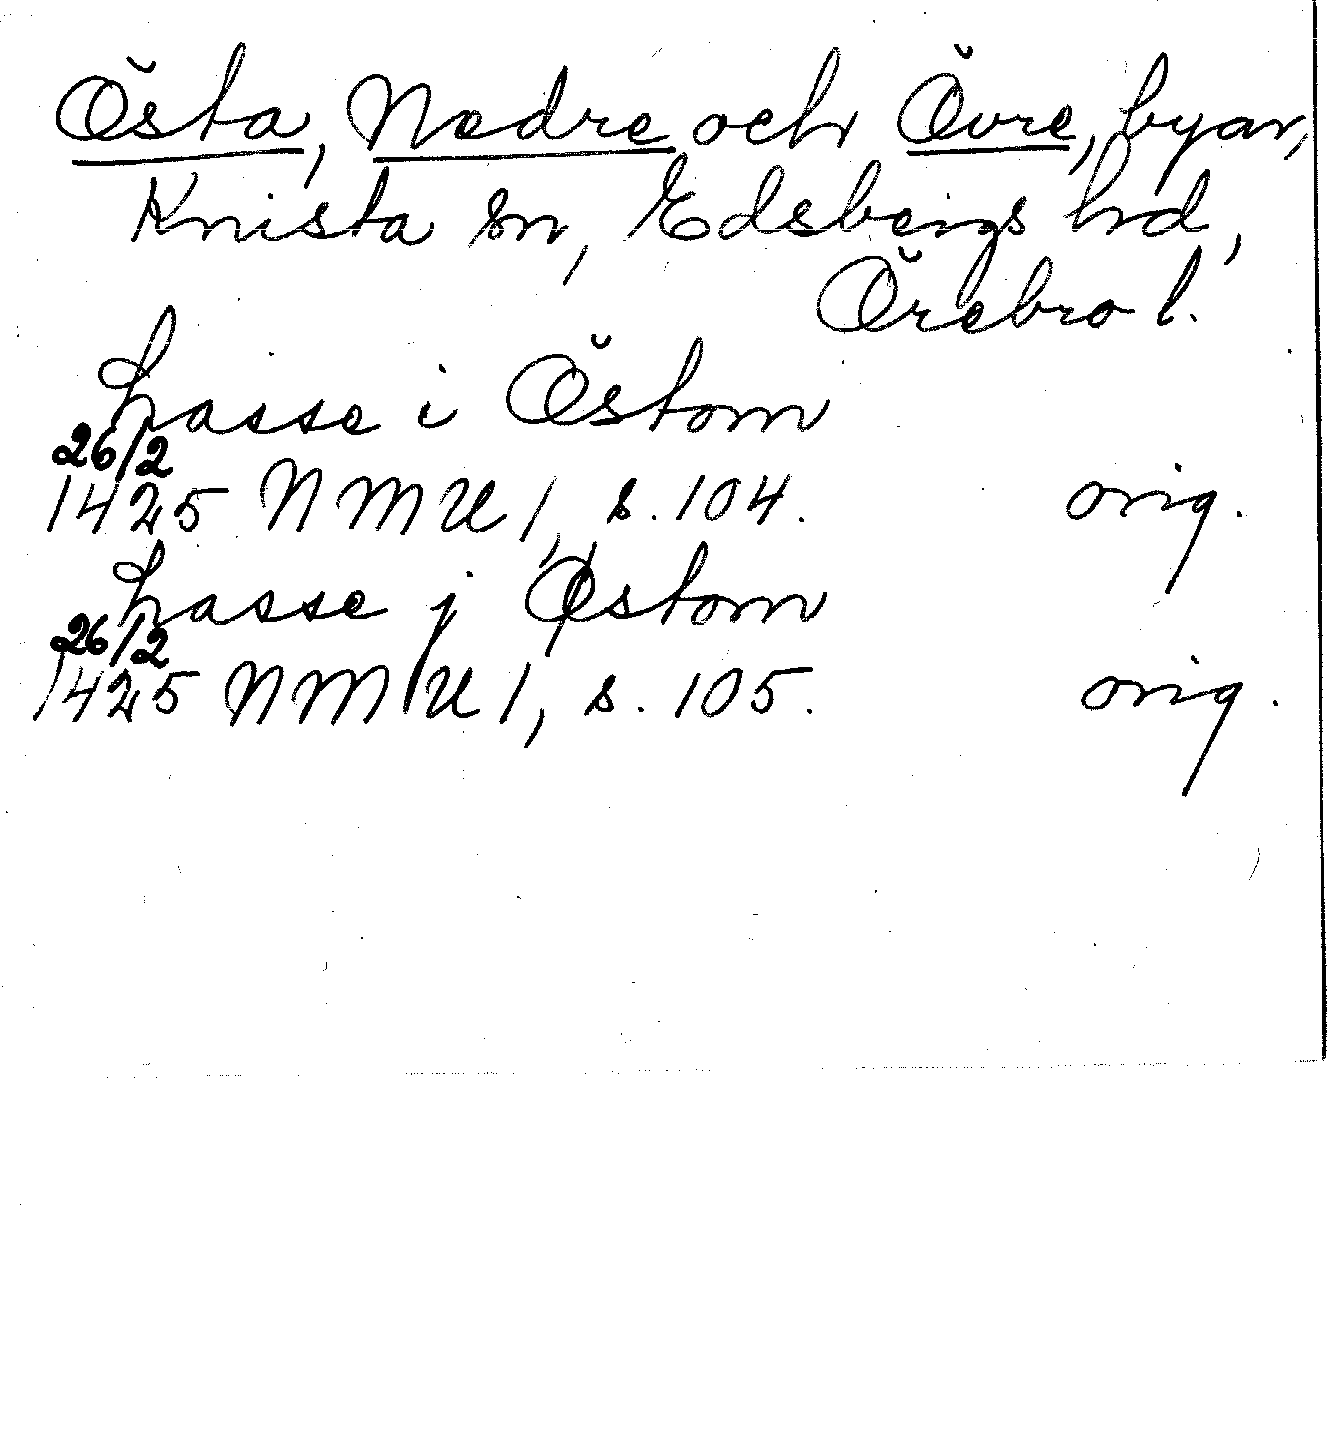 Östa, Nedre och Övre, byar,
Knista sn, Edsbergs hd,
Örebro l.
Lasse i Östom
26/2
1425 NMU 1, s. 104. orig.
Lasse j Østom
26/2
1425 NMU 1, s. 105. orig.